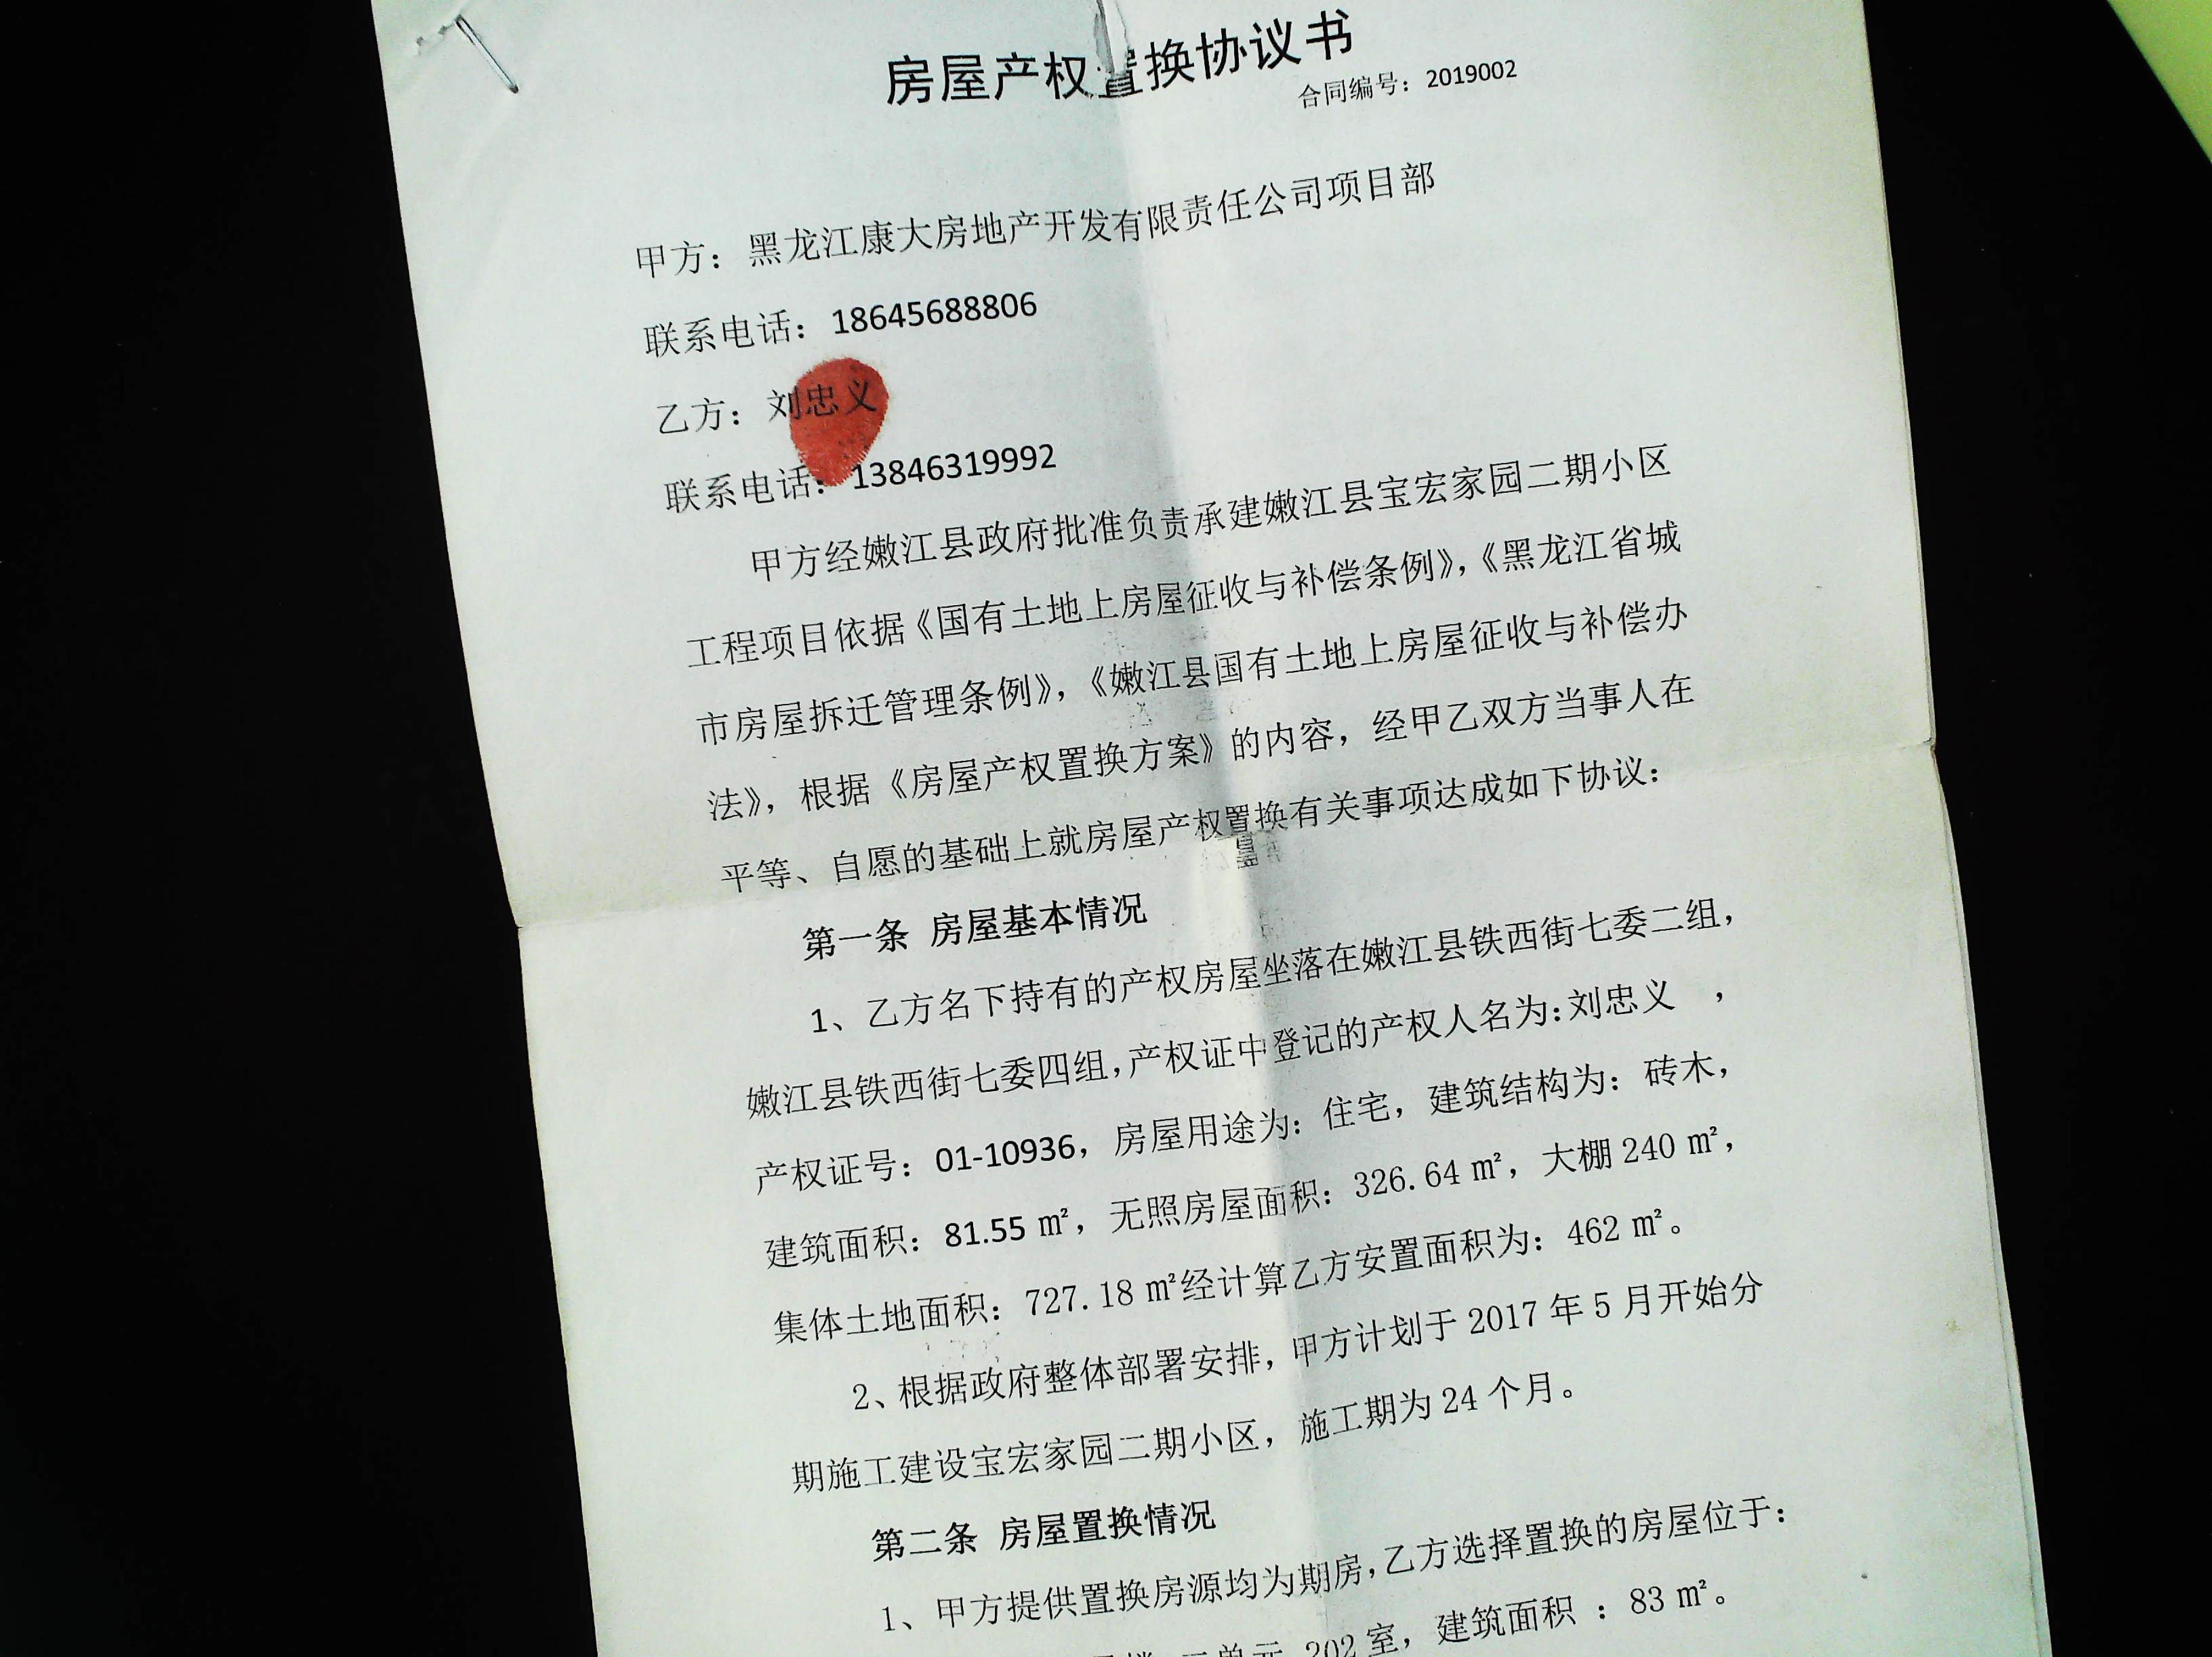 房屋产权置换协议书
合同编号：2019002
甲方：黑龙江康大房地产开发有限责任公司项目部
联系电话：18645688806
乙方：刘忠义
联系电话：13846319992
甲方经嫩江县政府批准负责承建嫩江县宝宏家园二期小区
工程项目依据《国有土地上房屋征收与补偿条例》，《黑龙江省城
市房屋拆迁管理条例》，《嫩江县国有土地上房屋征收与补偿办
法》，根据《房屋产权置换方案》的内容，经甲乙双方当事人在
平等、自愿的基础上就房屋产权置换有关事项达成如下协议：
第一条 房屋基本情况
1、乙方名下持有的产权房屋坐落在嫩江县铁西街七委二组，
嫩江县铁西街七委四组，产权证中登记的产权人名为：刘忠义 ，
产权证号：01-10936，房屋用途为：住宅，建筑结构为：砖木，
建筑面积：81.55 ㎡，无照房屋面积：326.64 ㎡，大棚 240 ㎡，
集体土地面积：727.18 ㎡经计算乙方安置面积为：462 ㎡。
2、根据政府整体部署安排，甲方计划于 2017 年 5 月开始分
期施工建设宝宏家园二期小区，施工期为 24 个月。
第二条 房屋置换情况
1、甲方提供置换房源均为期房，乙方选择置换的房屋位于：
单元 202 室，建筑面积 ：83 ㎡。